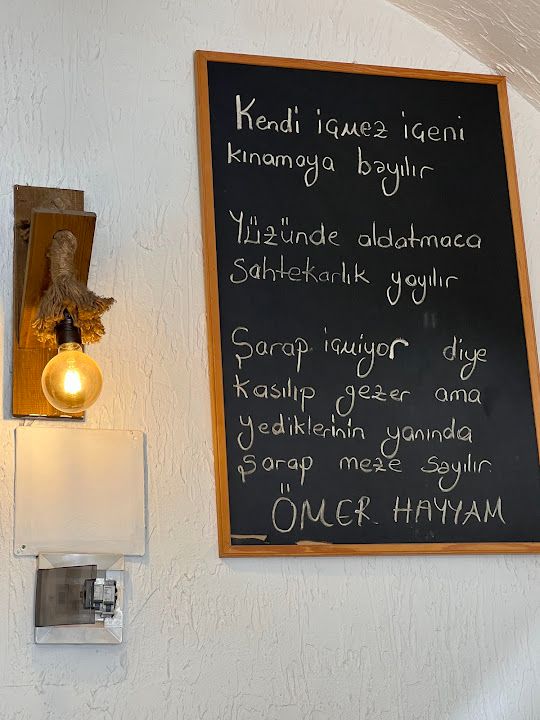 Kendi içmez içeni
kınamaya bayılır
Yüzünde aldatmaca
Sahtekarlık yayılır
Şarap içmiyor diye
kasılıp gezer ama
yediklerinin yanında
şarap meze sayılır.
ÖMER HAYYAM